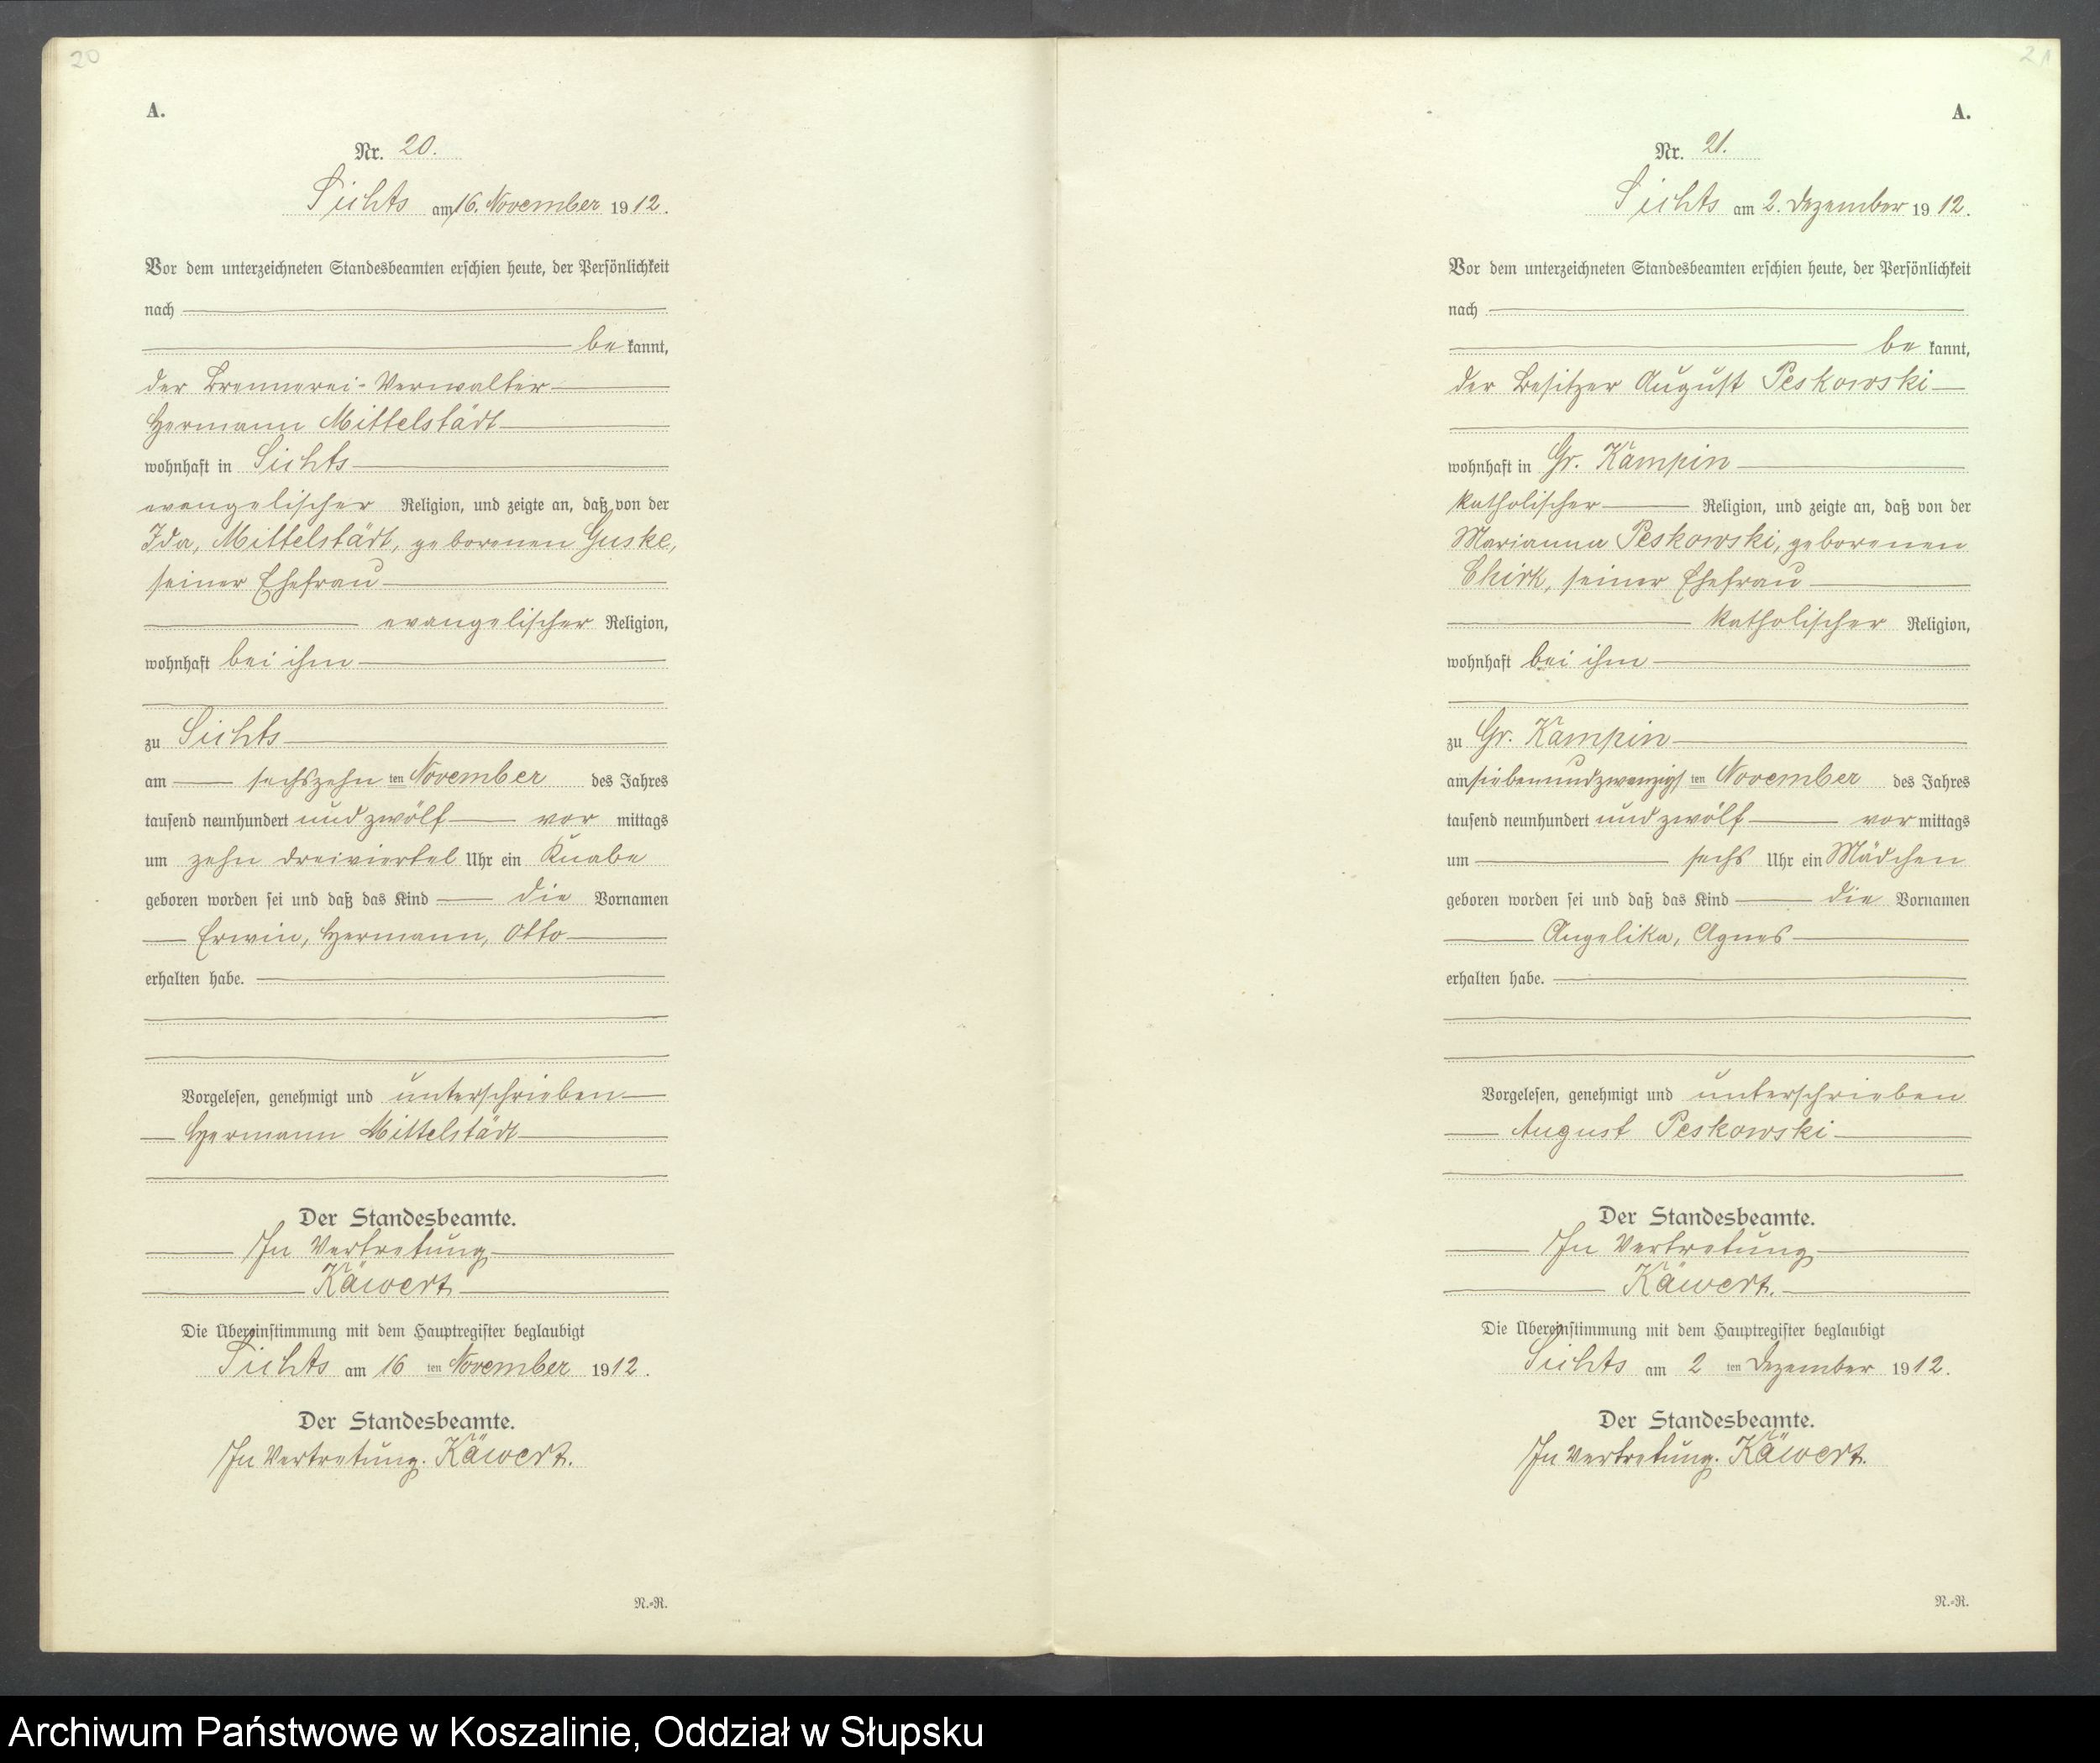 20
A.
Nr. 20.
Sichts am 16. November 1912.
Vor dem unterzeichneten Standesbeamten erschien heute, der Persönlichkeit
nach
be kannt,
der Brennerei-Verwalter
Hermann Mittelstädt
wohnhaft in Sichts
evangelischer Religion, und zeigte an, daß von der
Ida, Mittelstädt, geborenen Guske,
seiner Ehefrau
evangelischer Religion,
wohnhaft bei ihm
zu Sichts
am sechszehn ten November des Jahres
tausend neunhundert und zwölf vor mittags
um zehn dreiviertel Uhr ein Knabe
geboren worden sei und daß das Kind die Vornamen
Erwin, Hermann, Otto
erhalten habe.
Vorgelesen, genehmigt und unterschrieben
Hermann Mittelstädt
Der Standesbeamte.
In Vertretung
Käwert
Die Übereinstimmung mit dem Hauptregister beglaubigt
Sichts am 16 ten November 1912.
Der Standesbeamte.
In Vertretung. Käwert.
N.-R.
21
A.
Nr. 21.
Sichts am 2. Dezember 1912.
Vor dem unterzeichneten Standesbeamten erschien heute, der Persönlichkeit
nach
be kannt,
der Besitzer August Peskowski
wohnhaft in Gr. Kämpin
katholischer Religion, und zeigte an, daß von der
Marianna Peskowski, geborenen
Chirk, seiner Ehefrau
katholischer Religion,
wohnhaft bei ihm
zu Gr. Kämpin
am siebenundzwanzigs ten November des Jahres
tausend neunhundert und zwölf vor mittags
um sechs Uhr ein Mädchen
geboren worden sei und daß das Kind die Vornamen
Angelika, Agnes
erhalten habe.
Vorgelesen, genehmigt und unterschrieben
August Peskowski
Der Standesbeamte.
In Vertretung
Käwert.
Die Übereinstimmung mit dem Hauptregister beglaubigt
Sichts am 2 ten Dezember 1912.
Der Standesbeamte.
In Vertretung. Käwert.
N.-R.
Archiwum Państwowe w Koszalinie, Oddział w Słupsku